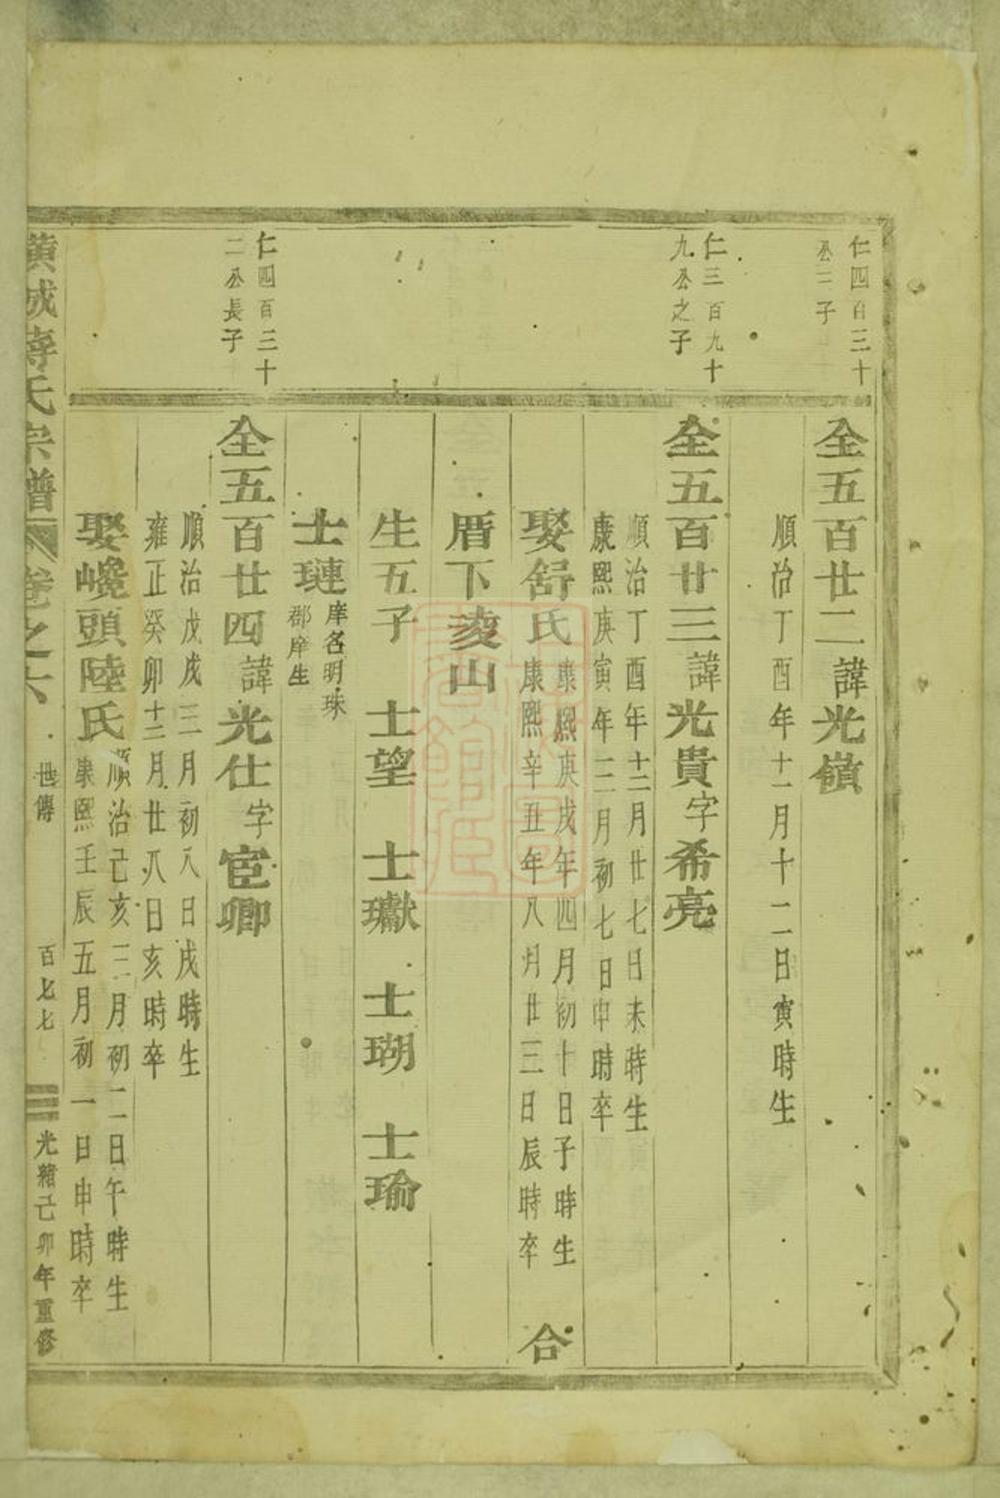 仁四百三十
公三子
全五百廿二諱光嶺
順治丁酉年十一月十二日寅時生
仁三百九十
九公之子
全五百廿三諱光貴字希亮
順治丁酉年十二月廿七日未時生
康熙庚寅年二月初七日申時卒
娶舒氏
康熙庚戌年四月初十日子時生
康熙辛丑年八月廿三日辰時卒
合
厝下淩山
生五子 士望 士瓛 士瑚 士瑜
士璉
庠名明珠
郡庠生
仁四百三十
二公長子
全五百廿四諱光仕字宦卿
順治戊戌三月初八日戌時生
雍正癸卯十二月廿八日亥時卒
娶巉頭陸氏
順治己亥三月初二日午時生
康熙壬辰五月初一日申時卒
黄城蔣氏宗譜 卷之六 世傳 百七七 光緒己卯年重修